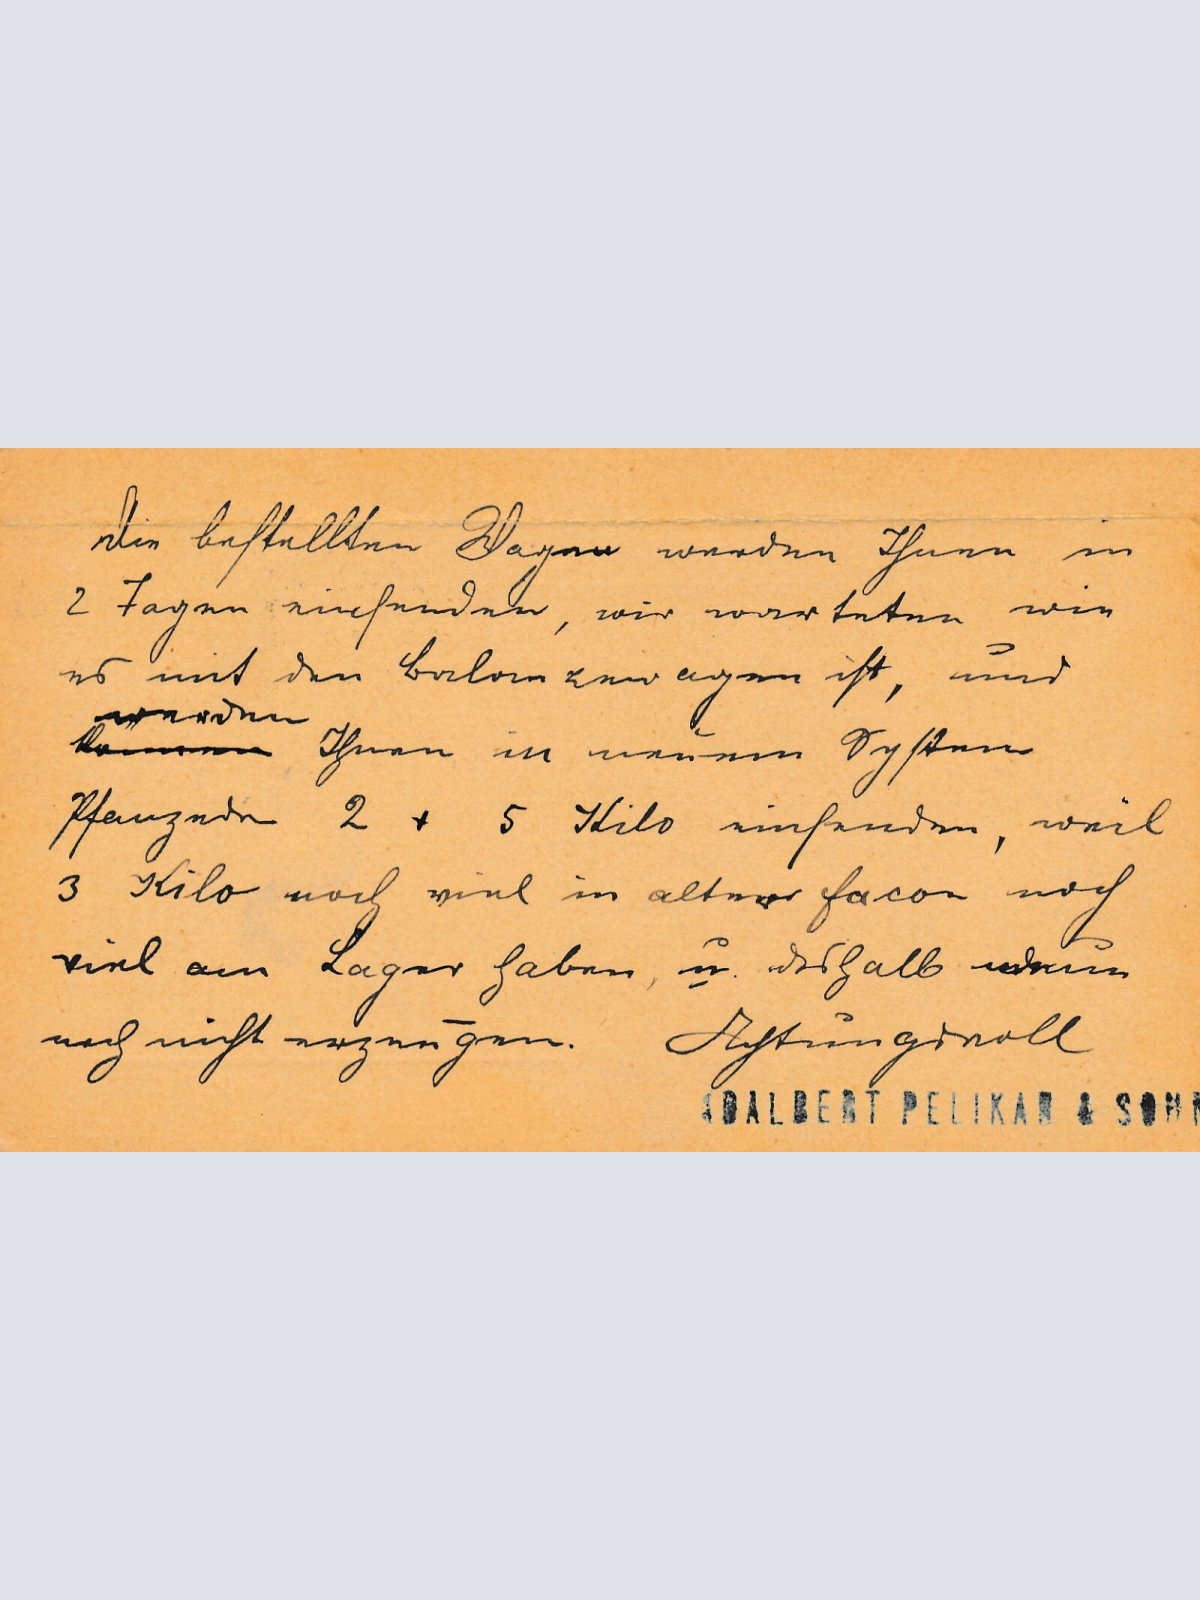 Die bestellten Wagen werden Ihnen in
2 Tagen einsenden, wir warteten wie
es mit den Balanzewagen ist, und
werden
können Ihnen in neuem System
2 + 5 Kilo einsenden, weil
3 Kilo noch viel in alter facon noch
viel am Lager haben, u. deshalb
noch nicht erzeugen. Achtungsvoll
ADALBERT PELIKAN & SOHN